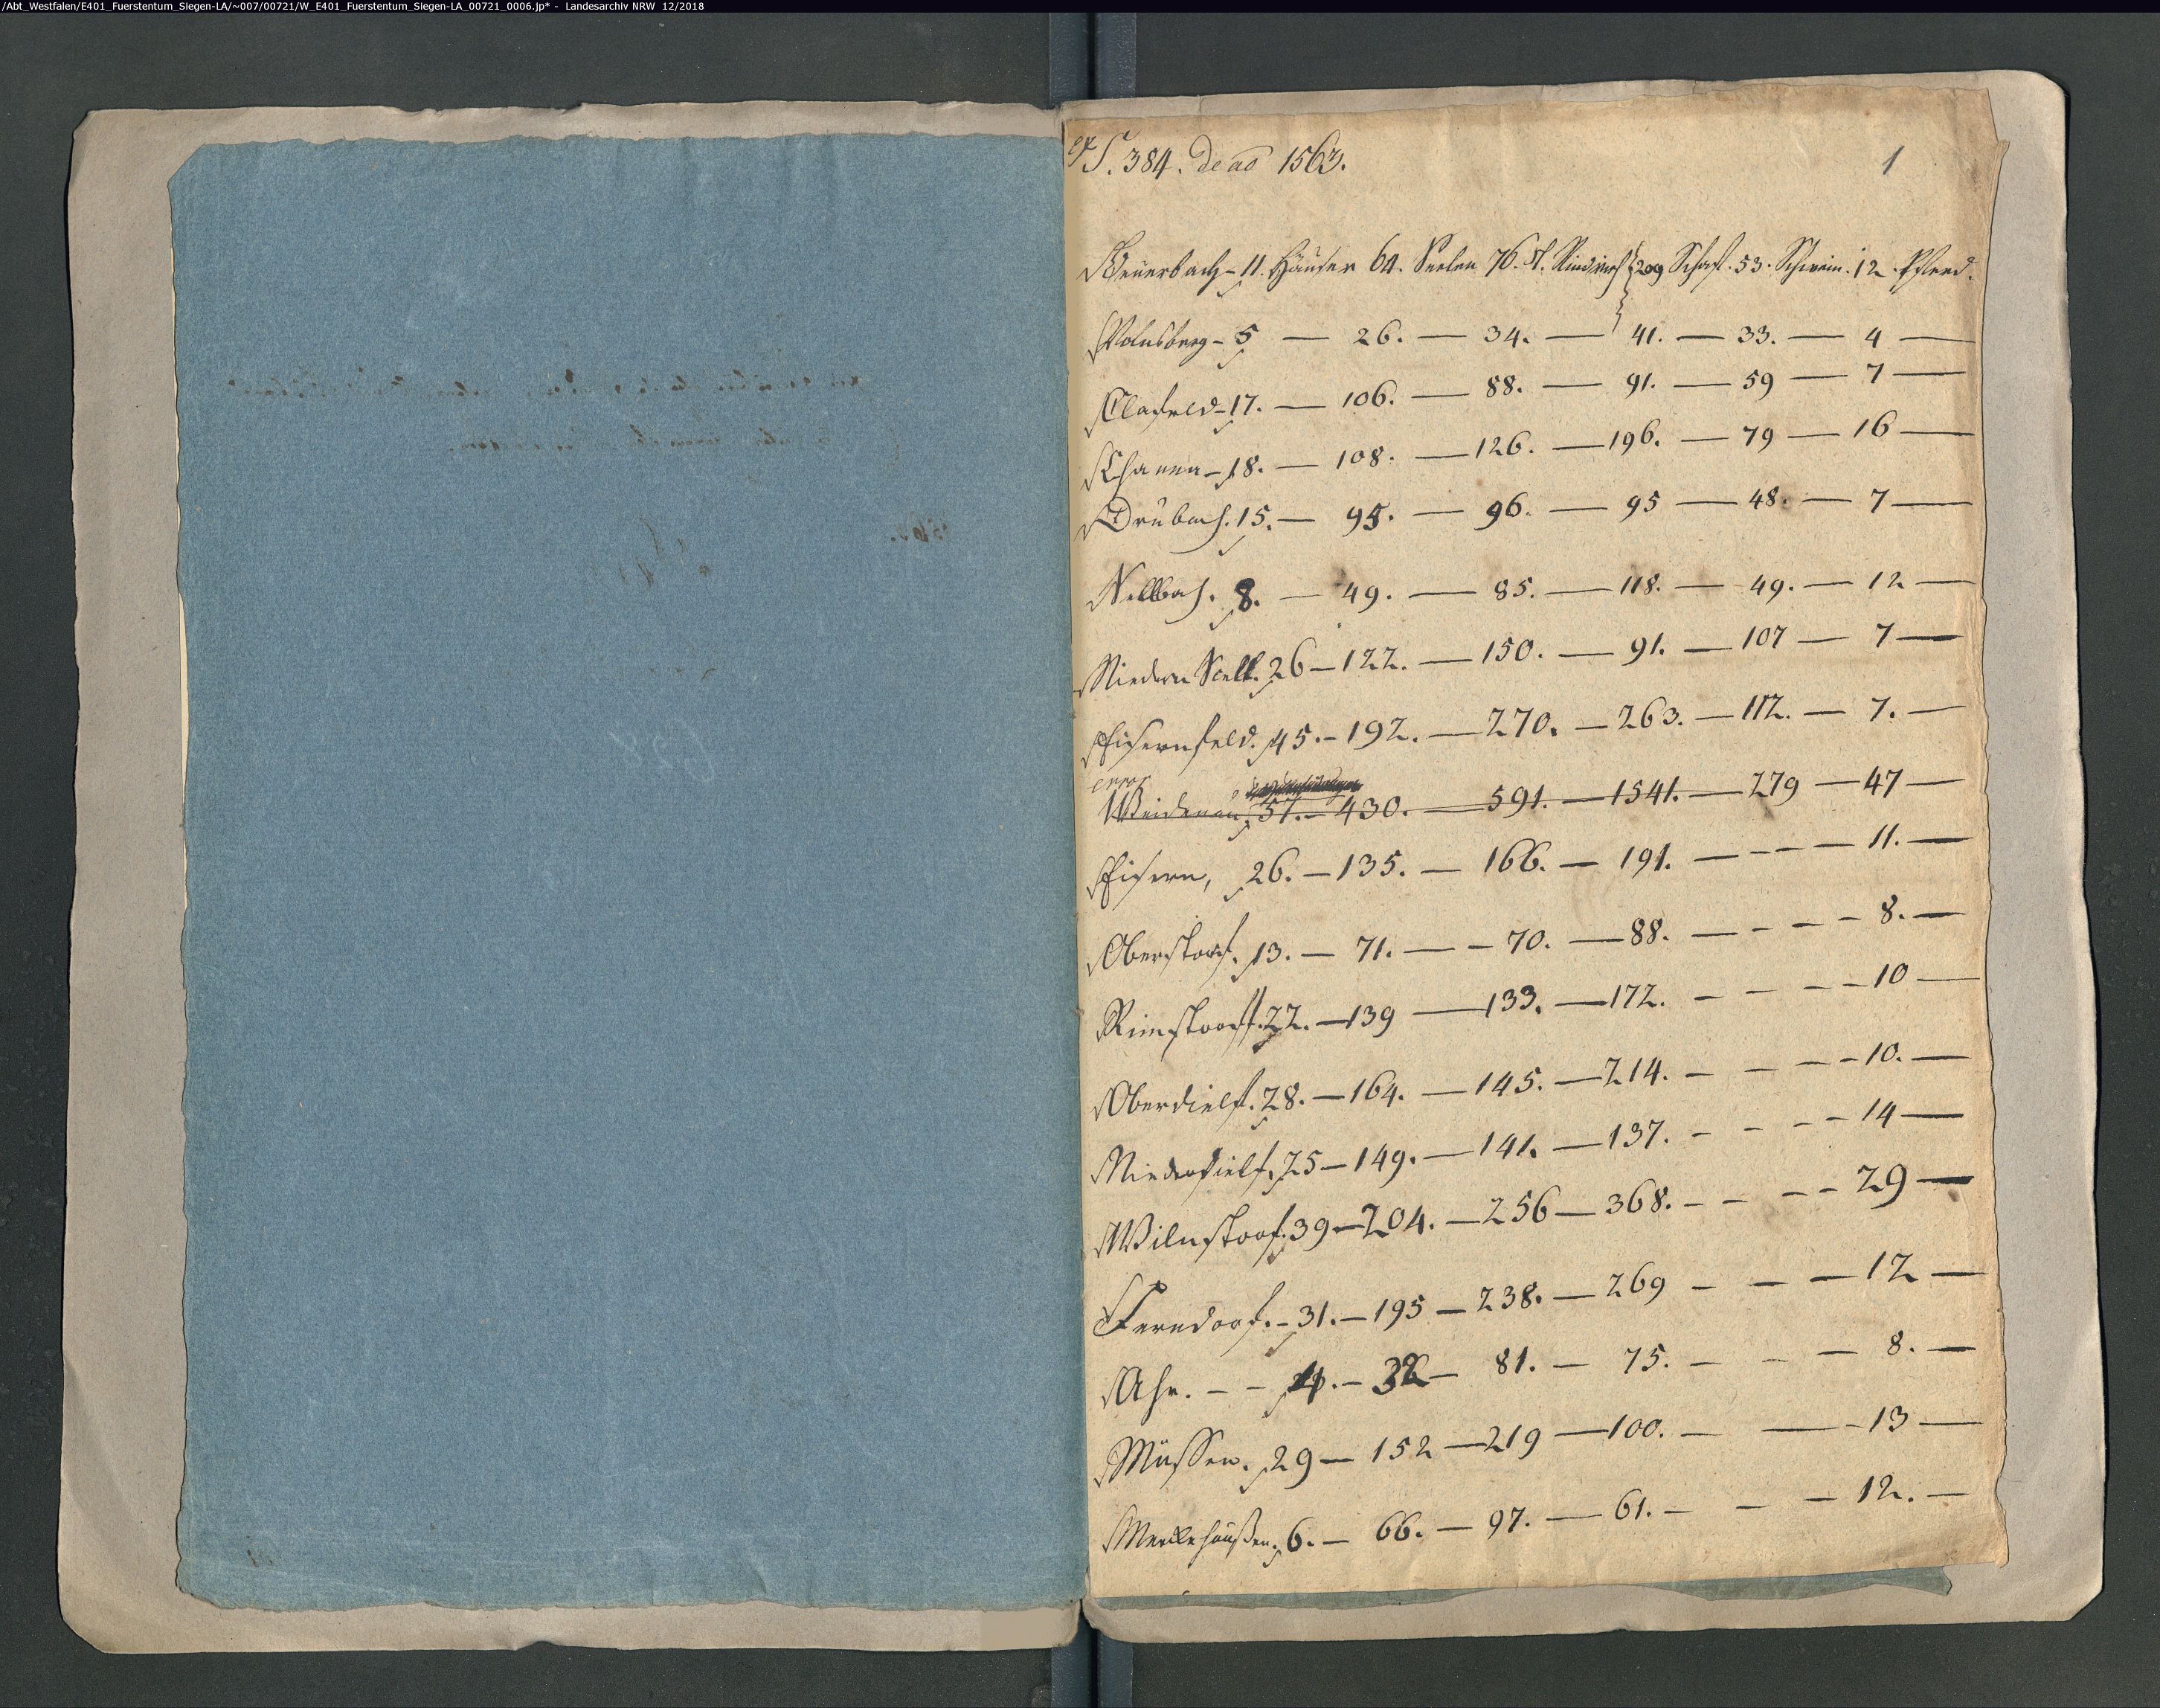 /Abt_Westfalen/E401_Fuerstentum_Siegen-LA/~007/00721/W_E401_Fuerstentum_Siegen-LA_00721_0006.jp* - Landesarchiv NRW 12/2018
S. 384. de ao 1563.
1
Beuerbach - 11. Häuser 64. Seelen 76. St. Rindvieh 209 Schaf. 53. Schwein. 12. Pferd.
Volnsberg - 5 — 26. — 34. — 41. — 33. — 4 —
Clafeld - 17. — 106. — 88. — 91. — 59 — 7 —
Chaenn - 18. — 108. — 126. — 196. — 79 — 16 —
Drubach. 15. — 95. — 96. — 95 — 48. — 7 —
Sellbach. 8. — 49. — 85. — 118. — 49. — 12 —
Niedern Scell. 26 — 122. — 150. — 91. — 107 — 7 —
Eisernfeld. 45. — 192. — 270. — 263. — 112. — 7. —
error
Weidenau, 57. — 430. — 591. — 1541. — 279 — 47 —
Eisern, 26. — 135. — 166. — 191. — - - — 11. —
Oberstorf. 13. — 71. — - 70. — 88. — - - - 8. —
Rinstorff. 22. — 139 — 133. — 172. - - - - 10 —
Oberdielf. 28. — 164. — 145. — 214. - - - - 10. —
Niederdielf. 25 — 149. — 141. — 137. - - - - 14 —
Wilnstorf. 39 — 204. — 256 — 368. - - - - 29 —
Ferndorf. - 31. — 195 — 238. — 269 - - — 12 —
Ahe. - - 4. — — 81. — 75. - - — 8. —
Müssen. 29 — 152 — 219 — 100. - — - 13 —
Merklehaußen. 6. — 66. — 97. — 61. - - - 12. —